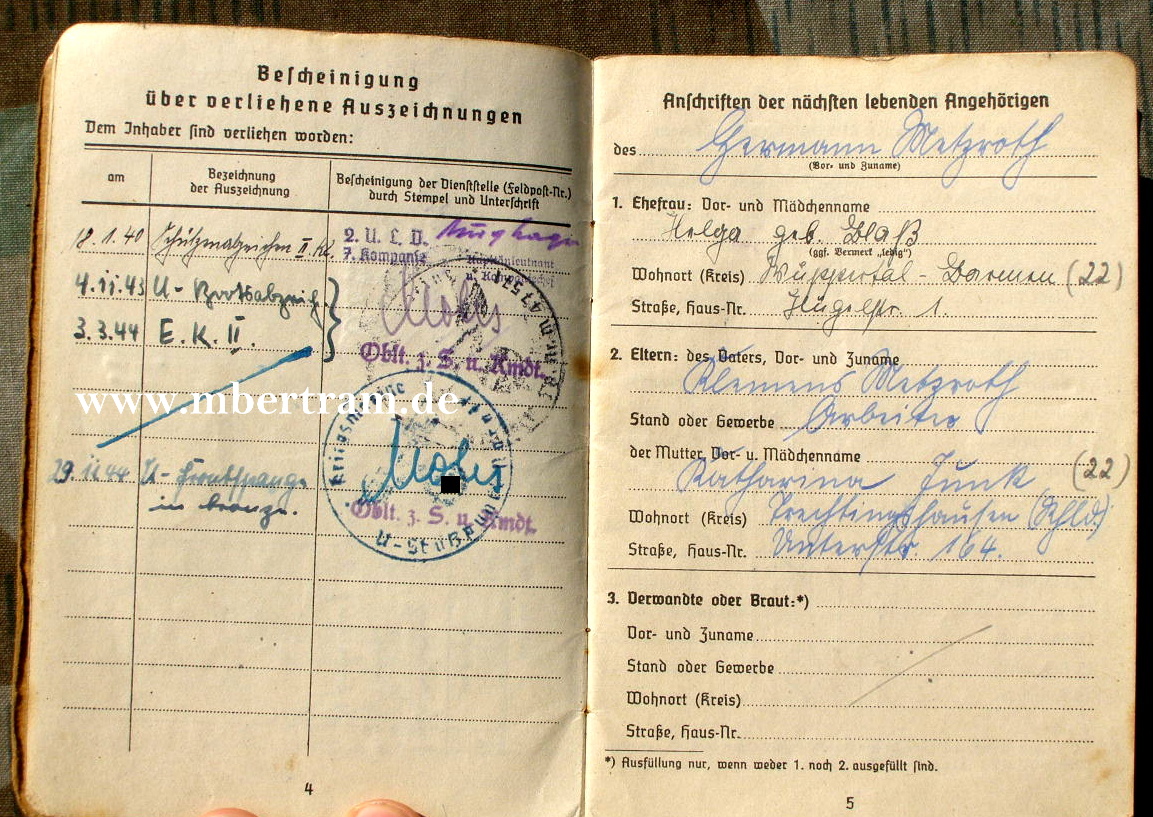 Bescheinigung
über verliehene Auszeichnungen
Dem Inhaber sind verliehen worden:
am
Bezeichnung
der Auszeichnung
Bescheinigung der Dienststelle (Feldpost-Nr.)
durch Stempel und Unterschrift
18.1.40 II Kl.
2. U. L. D.
7. Kompanie
Kapitänleutnant
4.11.43 U-Bootsabzeich
3.3.44 E. K. II.
Oblt. z. S. u. Kmdt.
www.mbertram.de
Kriegsmarine
29.11.44 U-Frontspange
in bronze.
Oblt. z. S. u. Kmdt.
U-Stützpunkt
4
Anschriften der nächsten lebenden Angehörigen
des Germann Metzroth
(Vor- und Zuname)
1. Ehefrau: Vor- und Mädchenname
Helga geb. Blaß
(ggf. Vermerk „ledig")
Wohnort (Kreis) Wuppertal-Barmen (22)
Straße, Haus-Nr. Hügelstr. 1.
2. Eltern: des Vaters, Vor- und Zuname
Klemens Metzroth
Stand oder Gewerbe Arbeiter
der Mutter, Vor- u. Mädchenname
Katharina Junk (22)
Wohnort (Kreis) Trechtingshausen
Straße, Haus-Nr. Unterstr 164.
3. Verwandte oder Braut:*)
Vor- und Zuname
Stand oder Gewerbe
Wohnort (Kreis)
Straße, Haus-Nr.
*) Ausfüllung nur, wenn weder 1. noch 2. ausgefüllt sind.
5